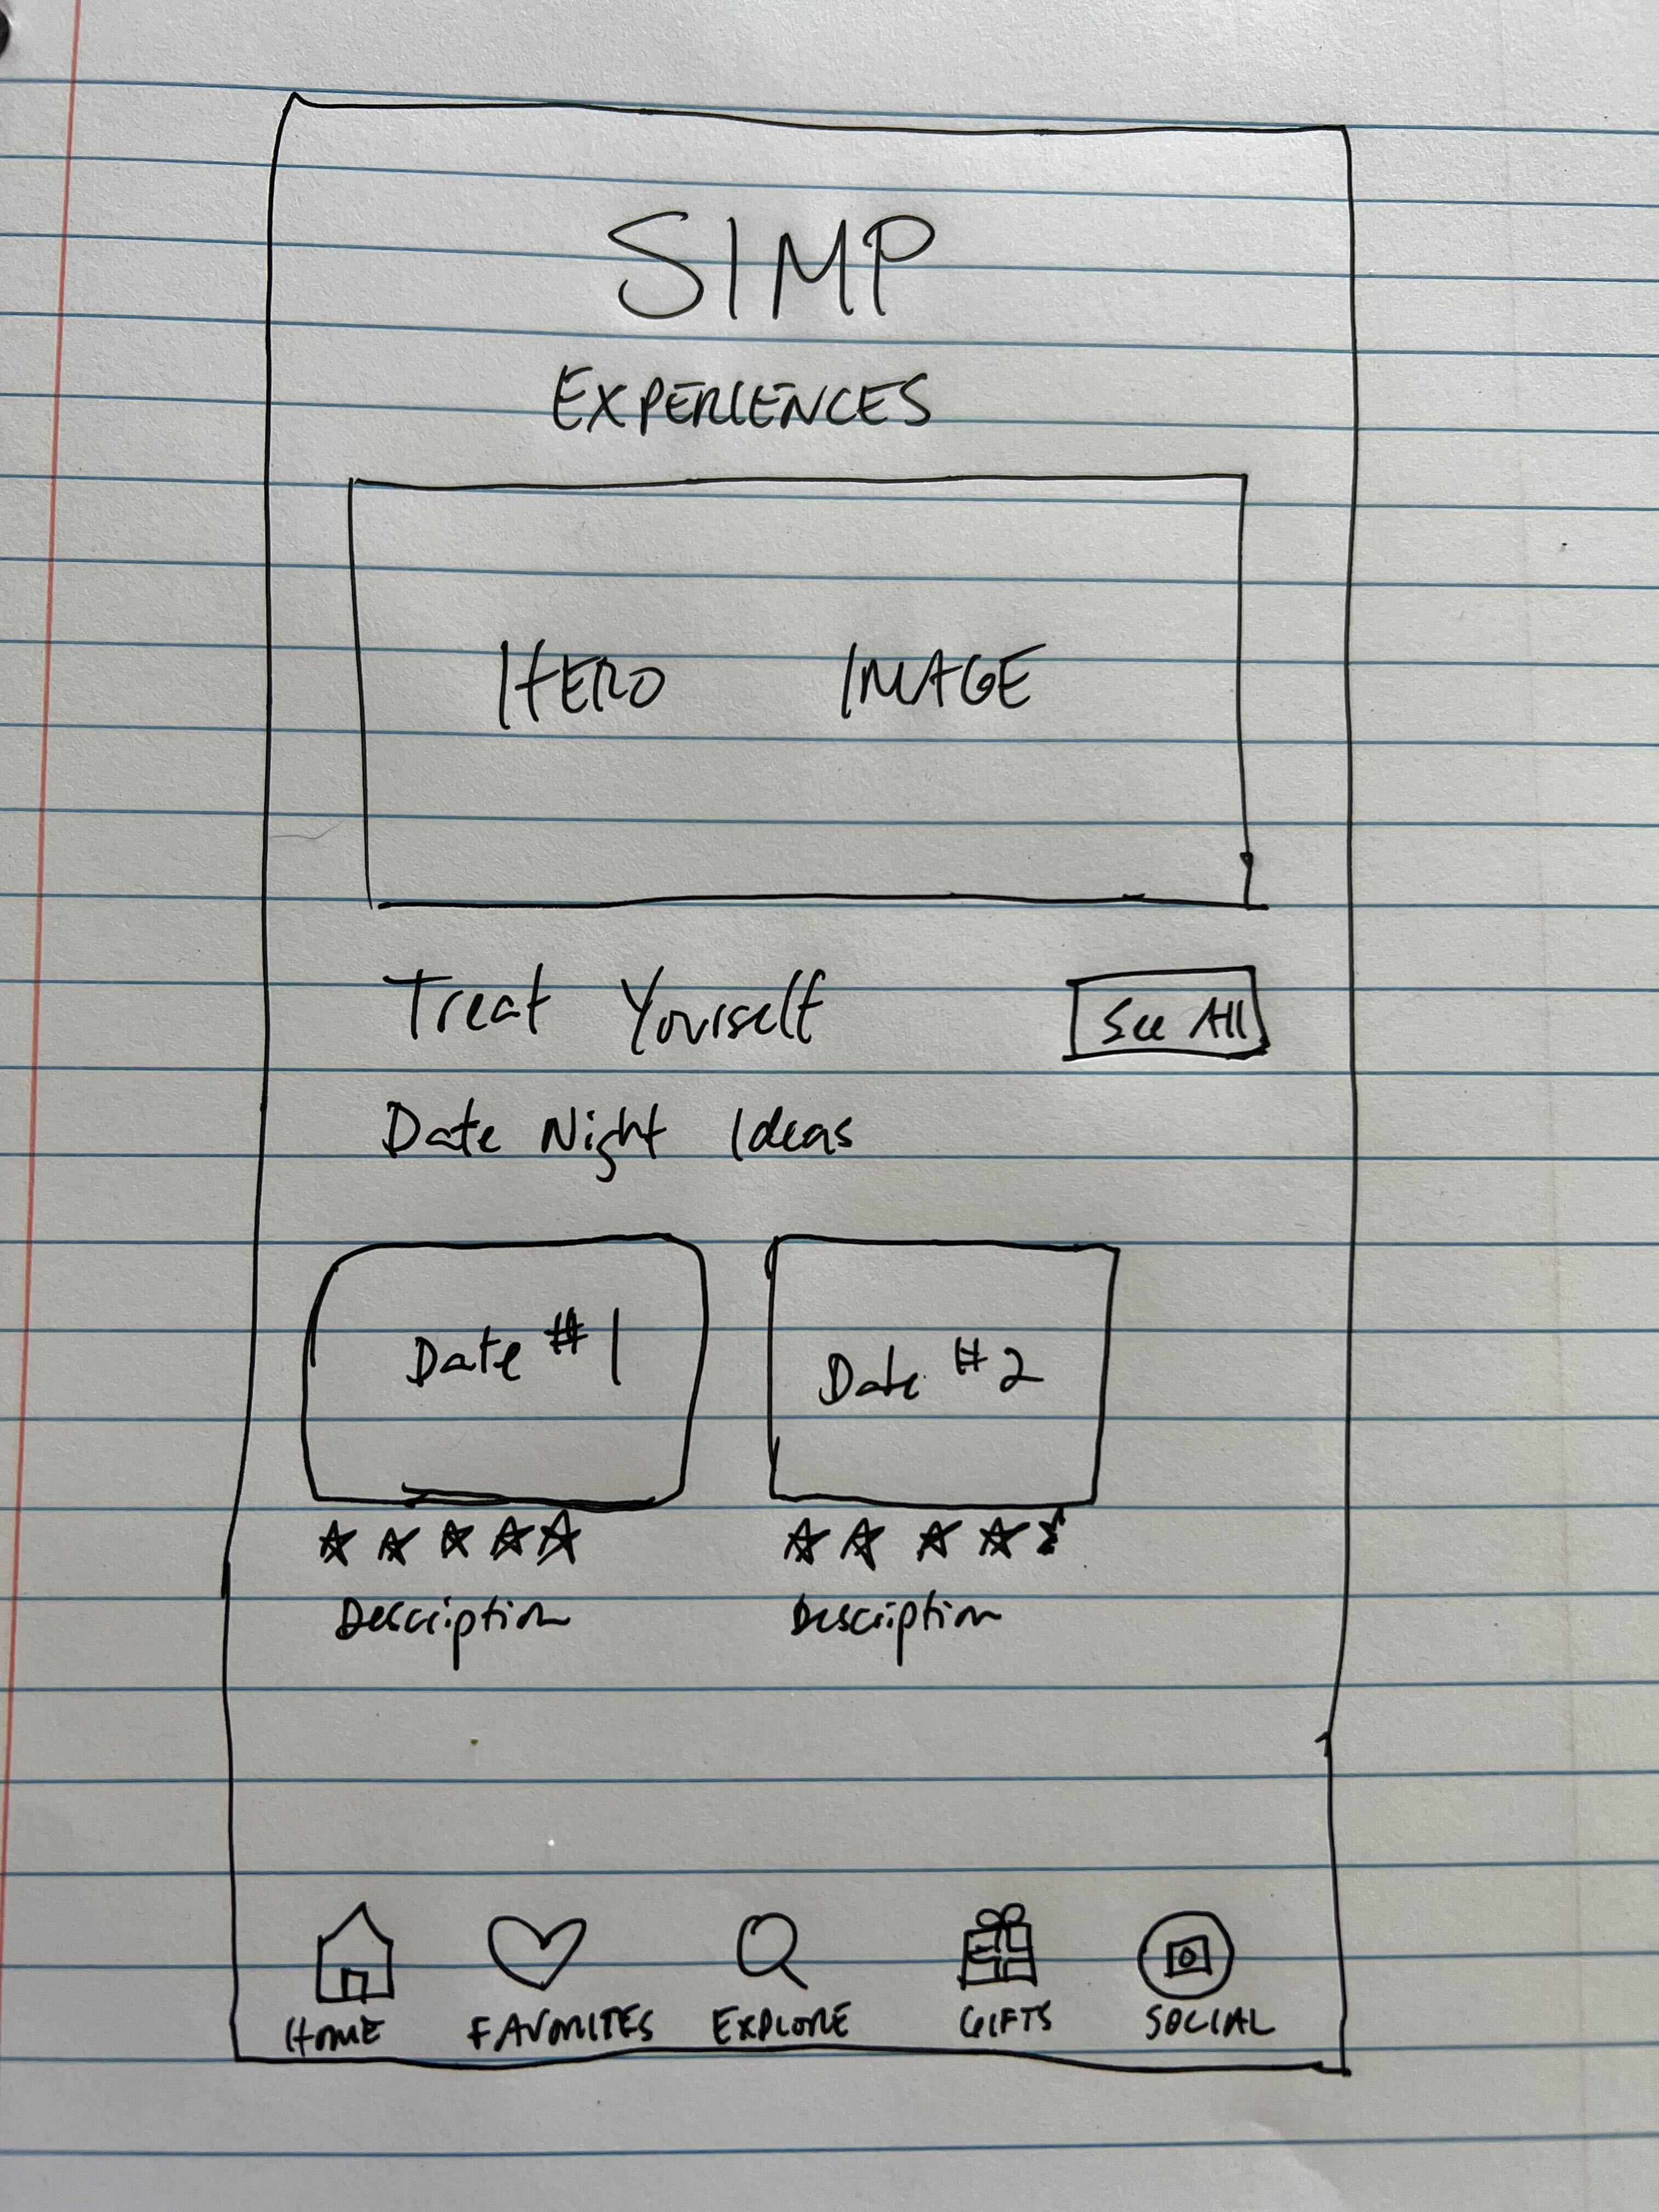 SIMP
EXPERIENCES
HERO IMAGE
Treat Yourself
See All
Date Night Ideas
Date #1
Date #2
Description
Description
HOME
FAVORITES
EXPLORE
GIFTS
SOCIAL